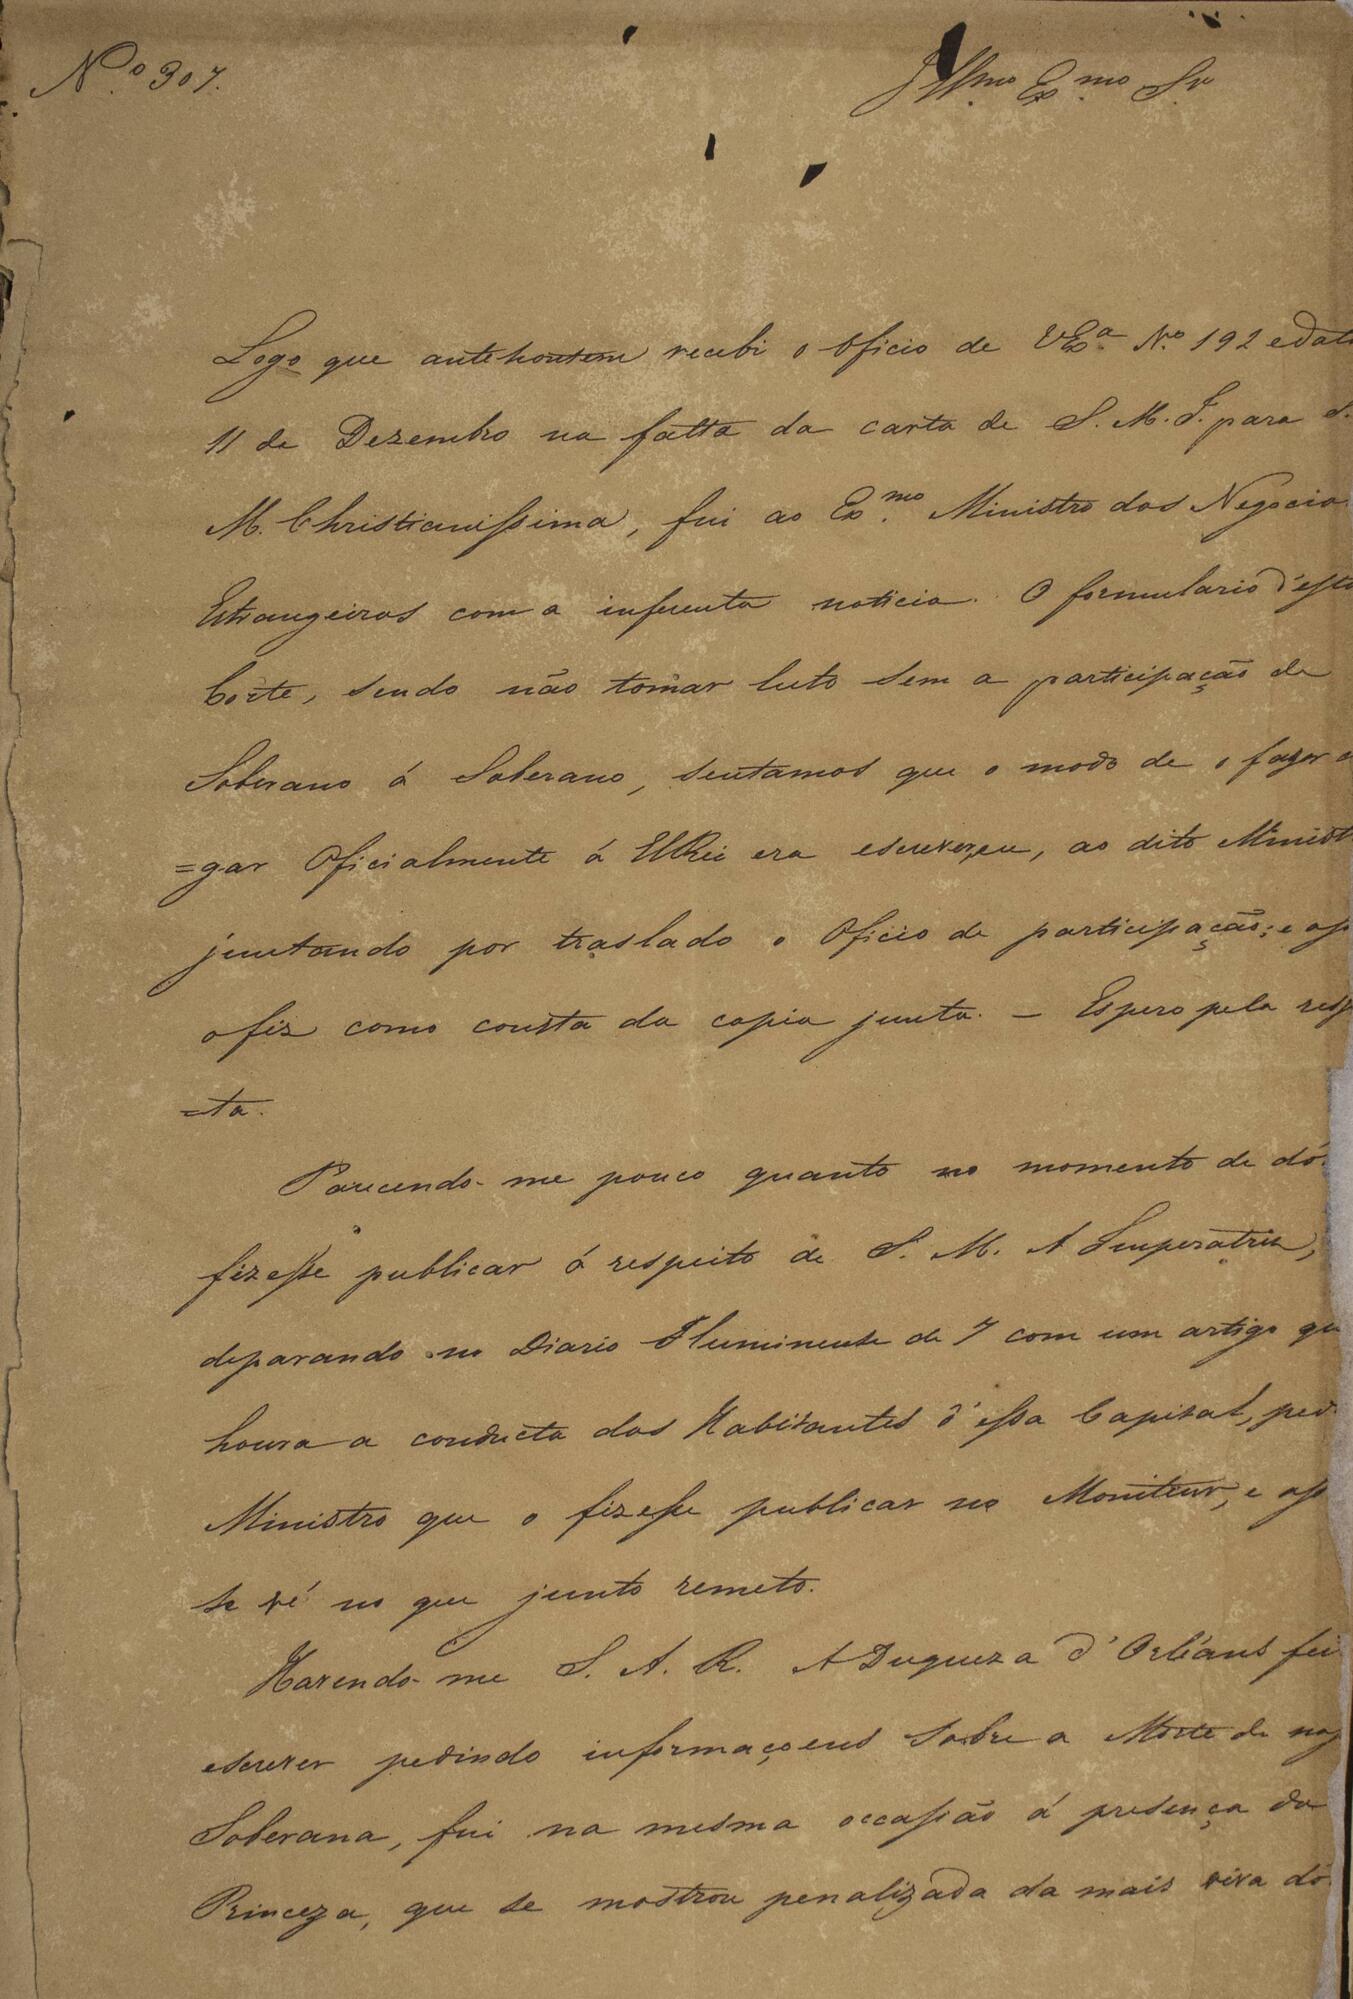 N.º 307.
Illmo Exmo Sr
Logo que antehontem recebi o Oficio de VExª Nº 192 e dat
11 de Dezembro na falta da carta de S. M. I. para S.
M. Christianissima, fui ao Exmo Ministro dos Negocio
Estrangeiros com a infuenta noticia. O formulario d'esta
Corte, sendo não tomar luto sem a participação de
Soberano á Soberano, sentamos que o modo de o fazer
=gar Oficialmente á ElRei era escrever,eu, ao dito Minist
juntando por traslado o Oficio de participação; e asi
o fiz como consta da copia junta. — Espero pela resp
=ta.
Parecendo-me pouco quanto no momento de dó
fizesse publicar á respeito de S. M. A Imperatriz,
deparando no Diario Fluminense de 7 com um artigo qu
honra a conducta dos Habitantes d'essa Capital, ped
Ministro que o fizesse publicar no Moniteur, e asi
se vé no que junto remeto.
Havendo-me S. A. R. A Duqueza d'Orléans fei
escrever pedindo informaçoens sobre a Morte de nos
Soberana, fui na mesma occasião á presença da
Princeza, que se mostrou penalizada da mais viva dó